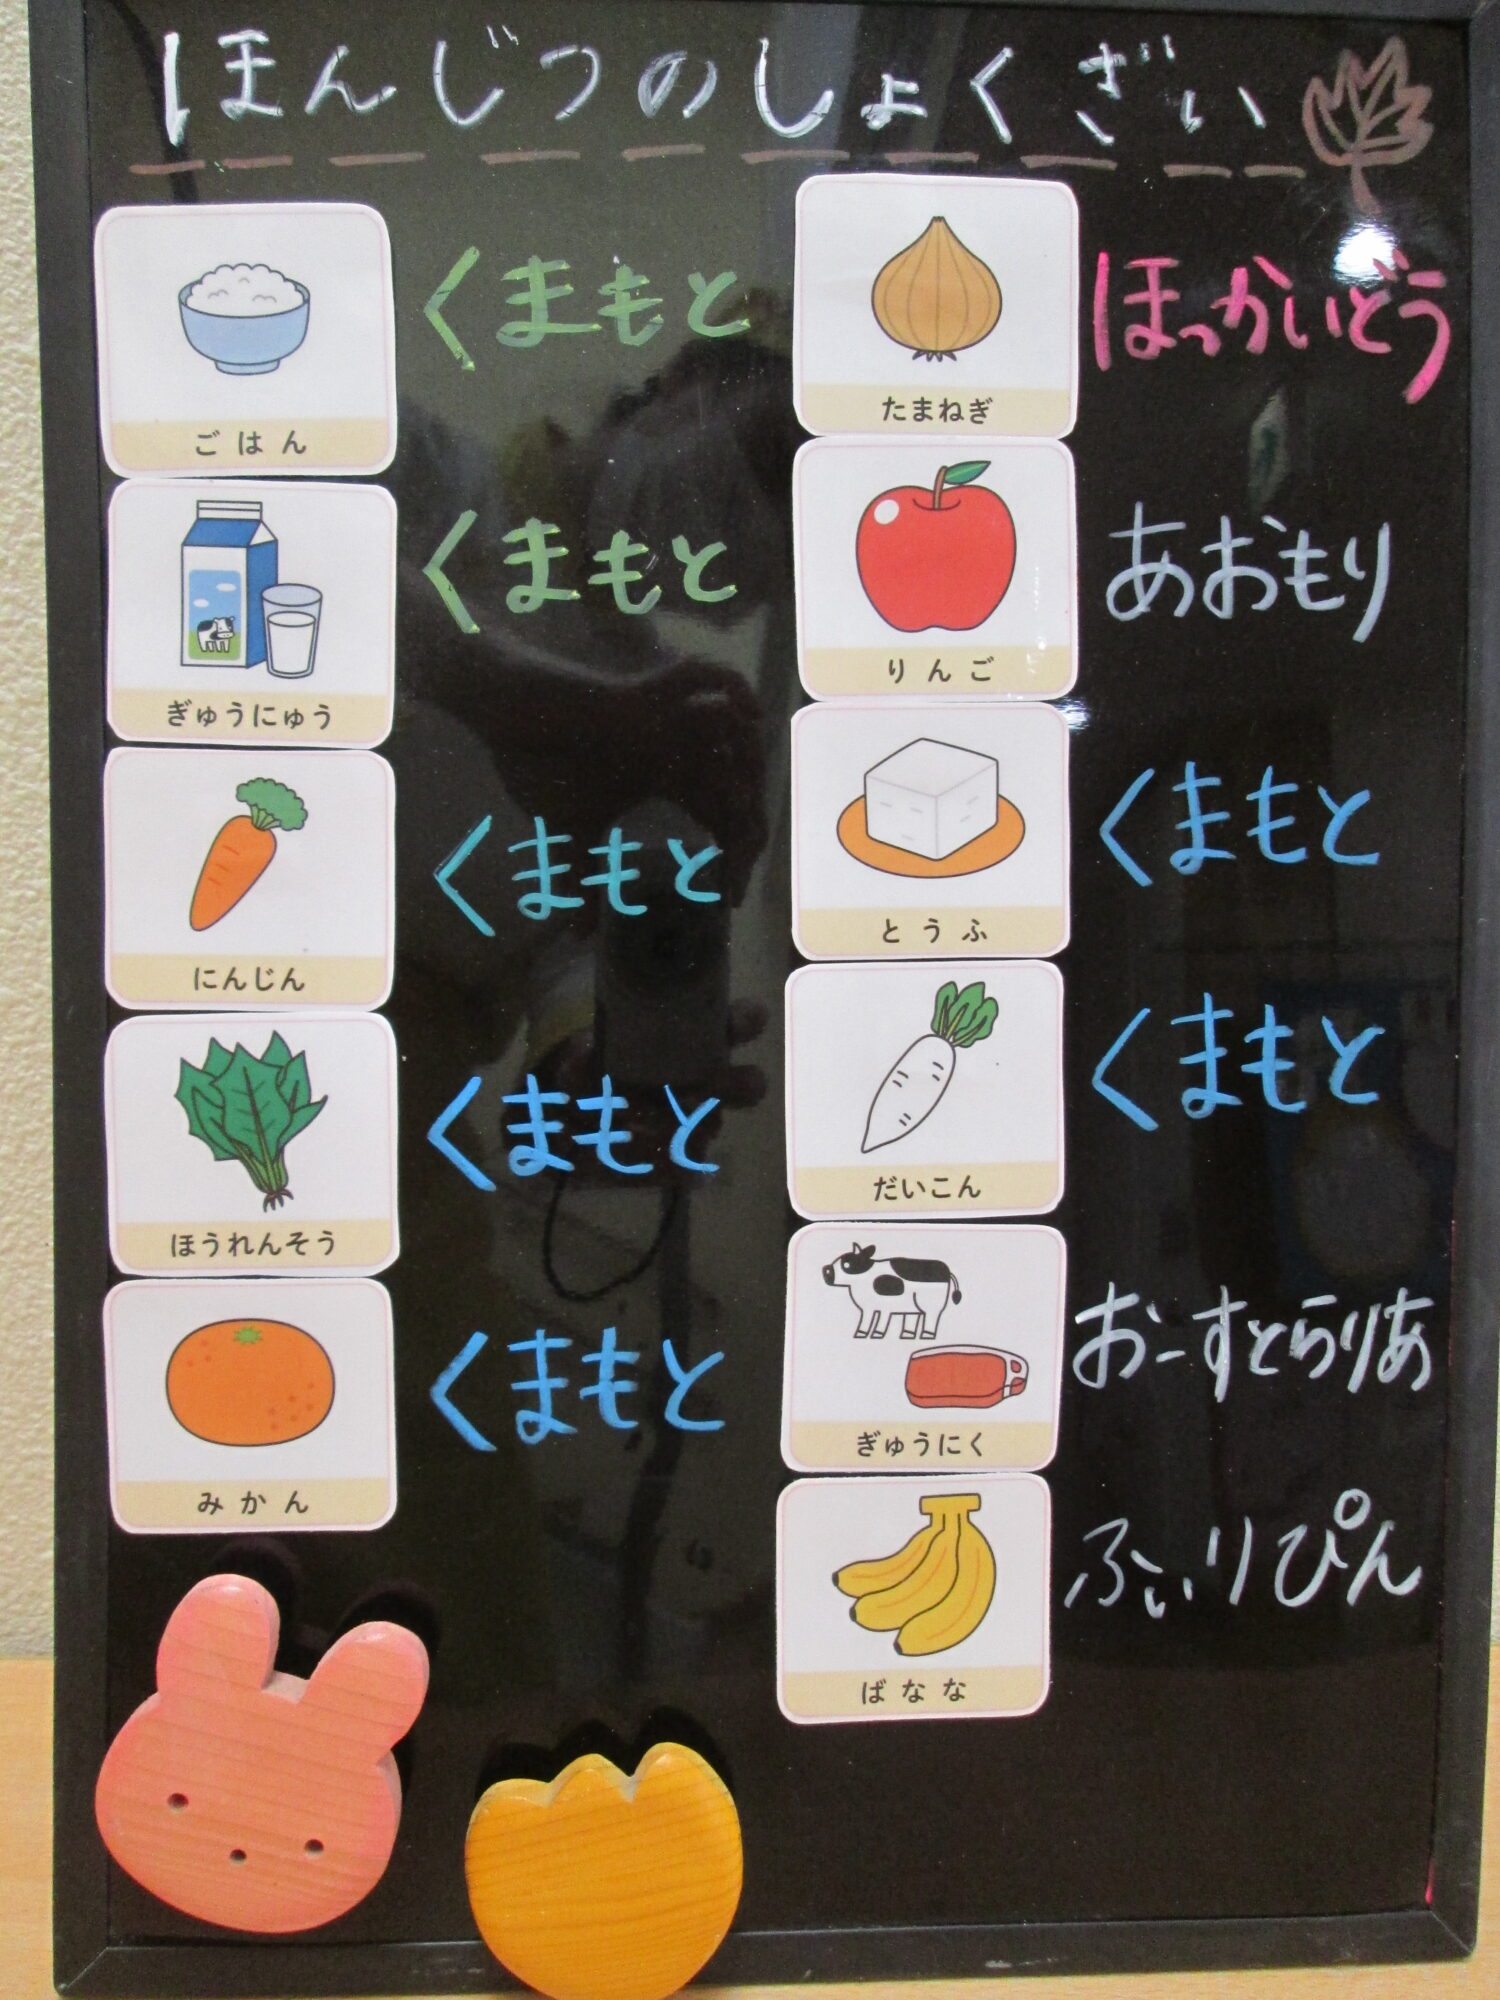 ほんじつのしょくざい
ごはん
くまもと
ぎゅうにゅう
くまもと
にんじん
くまもと
ほうれんそう
くまもと
みかん
くまもと
たまねぎ
ほっかいどう
りんご
あおもり
とうふ
くまもと
だいこん
くまもと
ぎゅうにく
おーすとらりあ
ばなな
ふぃりぴん